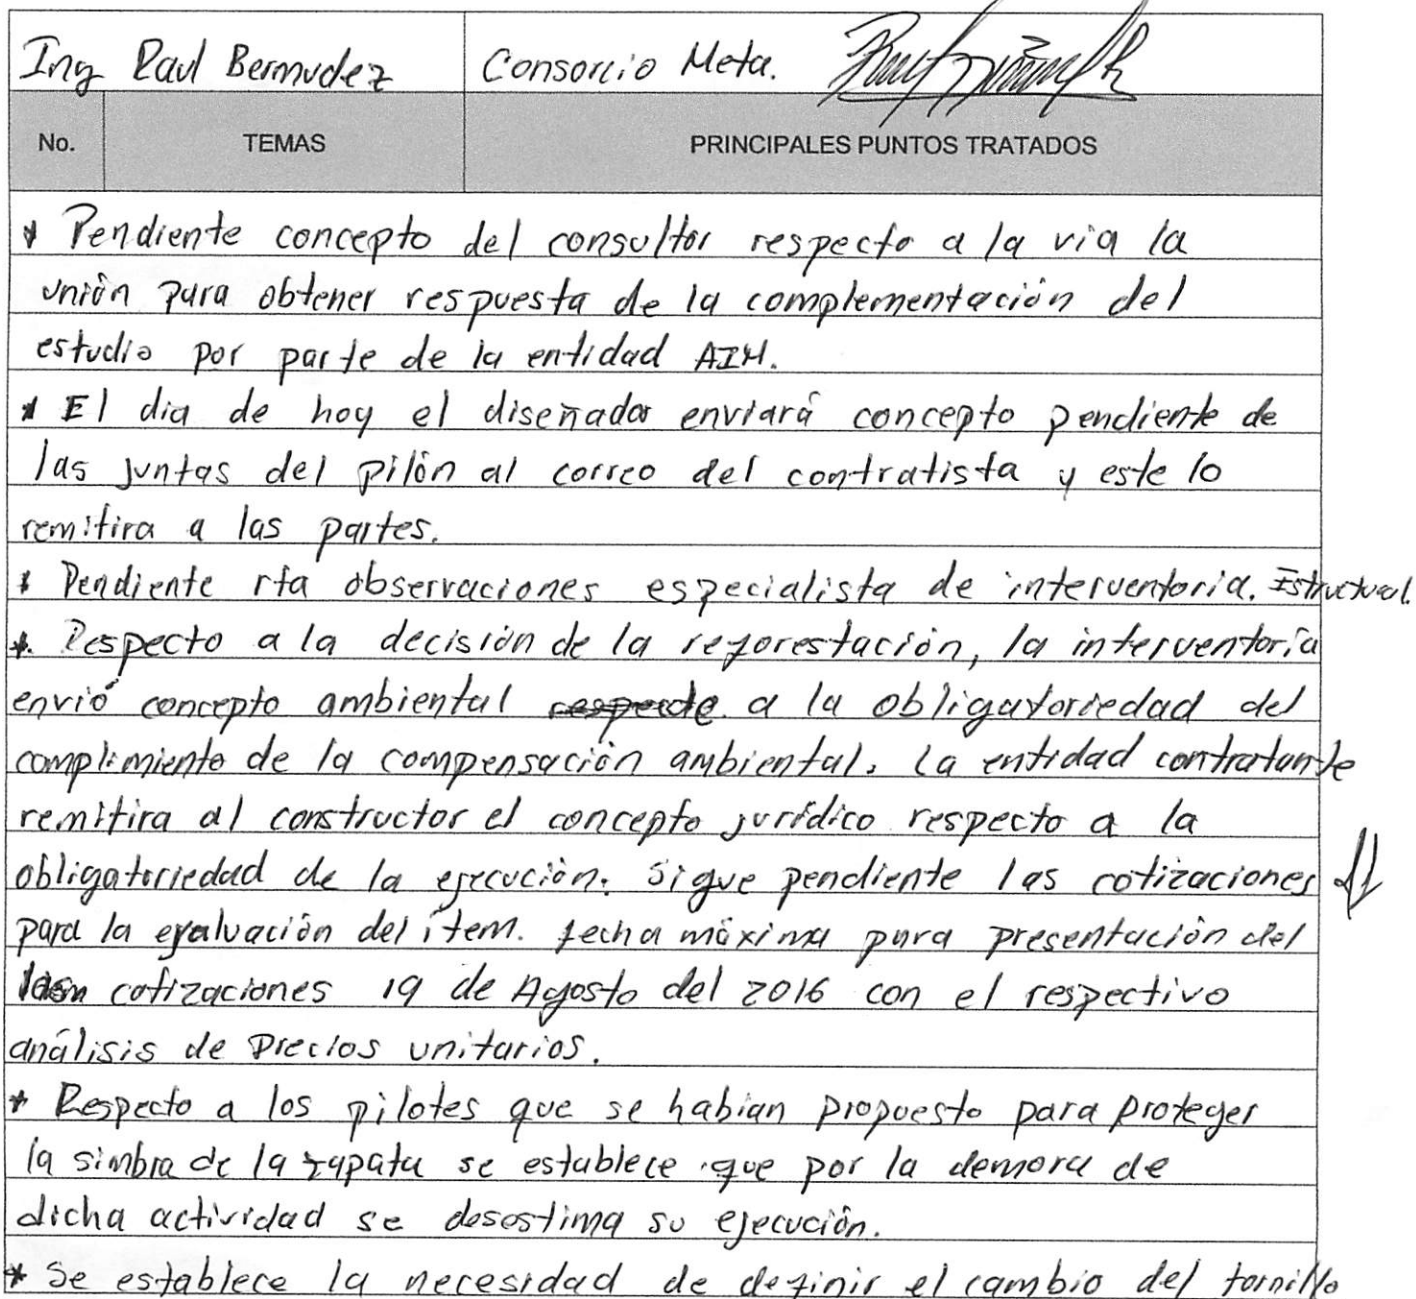 Ing Raul Bermudez Consorcio Meta.
No. TEMAS PRINCIPALES PUNTOS TRATADOS
* Pendiente concepto del consultor respecto a la via la
unión para obtener respuesta de la complementación del
estudio por parte de la entidad AIM.
* El dia de hoy el diseñador enviará concepto pendiente de
las juntas del pilón al correo del contratista y este lo
remitira a las partes.
* Pendiente rta observaciones especialista de interventoria. Estructural.
* Respecto a la decisión de la reforestación, la interventoría
envió concepto ambiental a la obligatoriedad del
complimiento de la compensación ambiental. La entidad contratante
remitira al constructor el concepto jurídico respecto a la
obligatoriedad de la ejecución. Sigue pendiente las cotizaciones
para la evaluación del ítem. fecha máxima para presentación del
cotizaciones 19 de Agosto del 2016 con el respectivo
análisis de precios unitarios.
* Respecto a los pilotes que se habian propuesto para proteger
la simbra de la zapata se establece que por la demora de
dicha actividad se desestima su ejecución.
* Se establece la necesidad de definir el cambio del tornillo